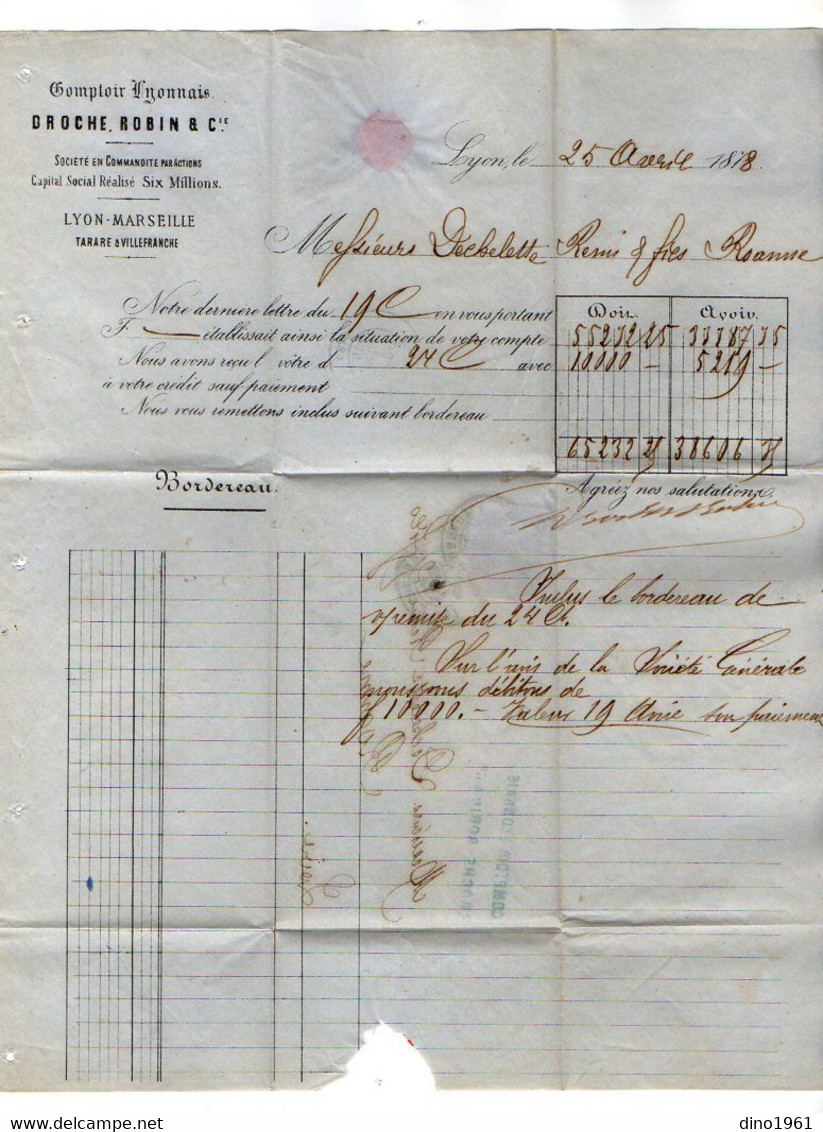 Comptoir Lyonnais.
DROCHE, ROBIN & Cie.
SOCIÉTÉ EN COMMANDITE PAR ACTIONS
Capital Social Réalisé Six Millions.
LYON-MARSEILLE
TARARE & VILLEFRANCHE
Lyon, le 25 Avril 1878.
Messieurs Déchelette Remi & fres Roanne
Notre dernière lettre du 19 Ct en vous portant
F. — établissait ainsi la situation de votre compte
Nous avons reçu l votre d 24 Ct avec
à votre crédit sauf paiement
Nous vous remettons inclus suivant bordereau
Doit. Avoir.
55232 25 33387 35
10000 — 5219 —
65232 25 38606 35
Agréez nos salutations.
Bordereau.
Inclus le bordereau de
v/ remise du 24 Ct.
Sur l'avis de la Société Générale
nous vous débitons de
f 10000. — Valeur 19 son paiement
COMPTOIR LYONNAIS
DROCHE ROBIN
dino1961